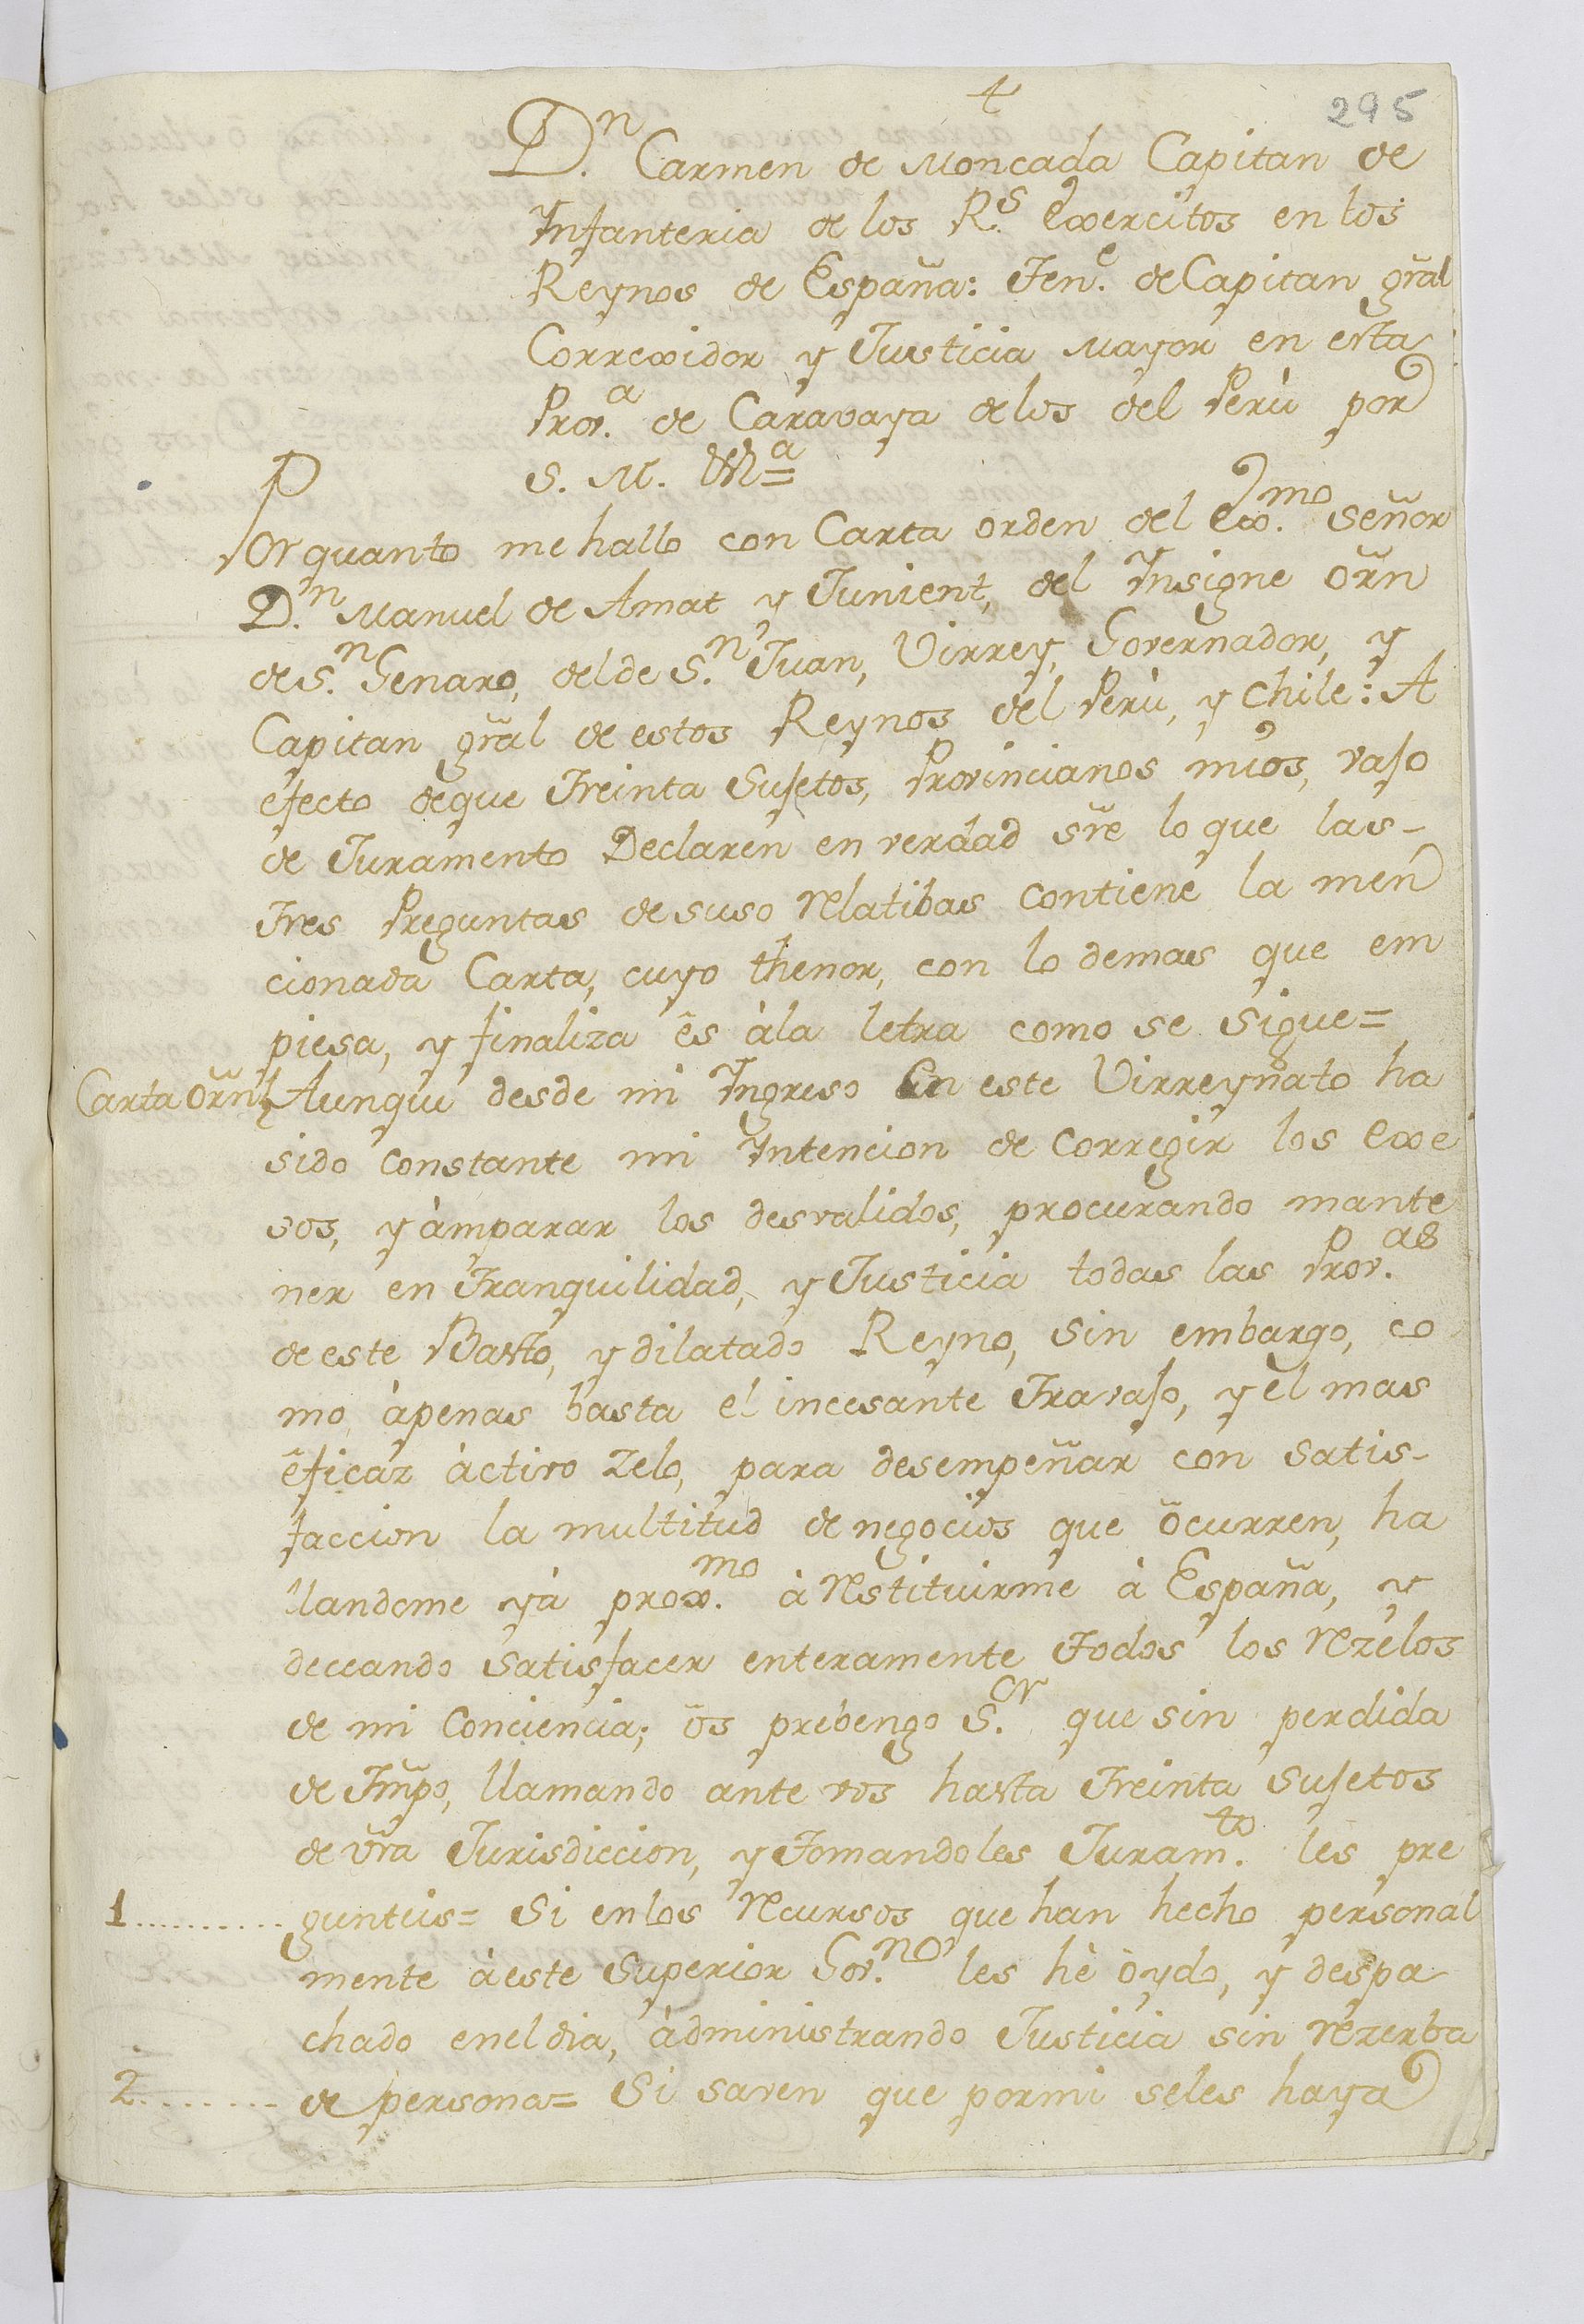 295
D.n Carmen de Moncada Capitan de
Infanteria de los R.s Exercitos en los
Reynos de España: Ten.e de Capitan gral
Correxidor y Justicia mayor en esta
Prov.a de Caravaya de los del Perù por
S. M. &a=
Por quanto me hallo con Carta orden del Exmo. Señor
D.n Manuel de Amat y Junient, del Insigne orn
de S.n Genaro, del de S.n Juan, Virrey, Governador, y
Capitan gral de estos Reynos del Perù, y Chile: A
efecto deque Treinta Sujetos, Provincianos mios, vajo
de Juramento Declaren en verdad sre lo que las-
Tres Preguntas de suso relatibas contiene la men
cionada Carta, cuyo thenor, con lo demas que em
piesa, y finaliza ês àla letra como se sigue=
Carta orn} Aunque desde mi Ingreso En este Virreynato ha
sido constante mi Intencion de corregir los exe
sos, y àmparar los desvalidos, procurando mante
ner en Tranquilidad, y Justicia todas las Prov.as
de este Basto, y dilatado Reyno, sin embargo, co
mo àpenas basta él incesante Travajo, y èl mas
êficaz àctivo zelo, para desempeñar con satis-
faccion la multitud de negocios que ôcurren, ha
llandome yà prox.mo à restituirme à España, y
deceando satisfacer enteramente Todos los rezelos
de mi Conciencia; os prebengo S.or que sin perdida
de Tmpo, llamando ante vos hasta Treinta sujetos
de vra Jurisdiccion, y Tomandoles Juram.to les pre
1.......... gunteis= Si en los recursos que han hecho personal
mente à este Superior Gov.no les hè òydo, y despa
chado en el dia, àdministrando Justicia sin rezerba
2........ de persona= Si saven que por mi seles haya